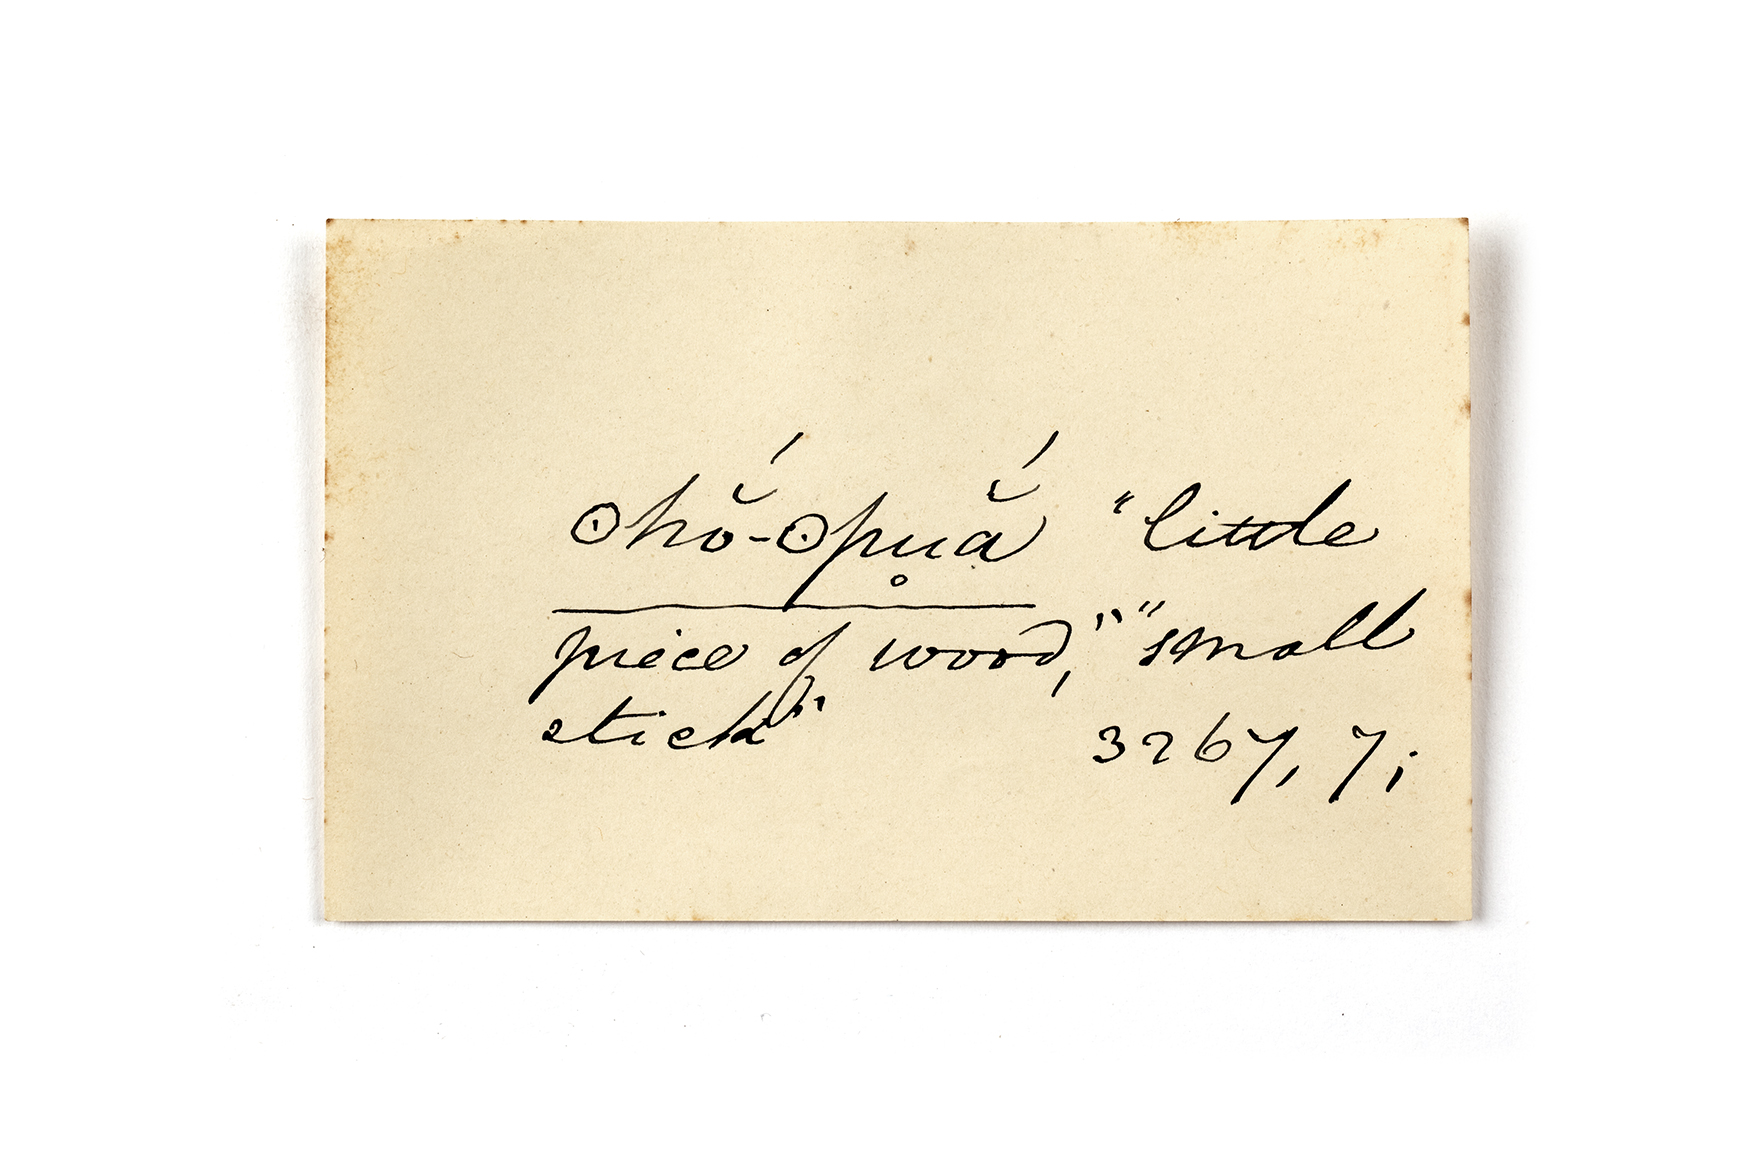 ʘhŏ́-ʘpu̥ắ "little
piece of wood," "small
stick" 3267, 7;